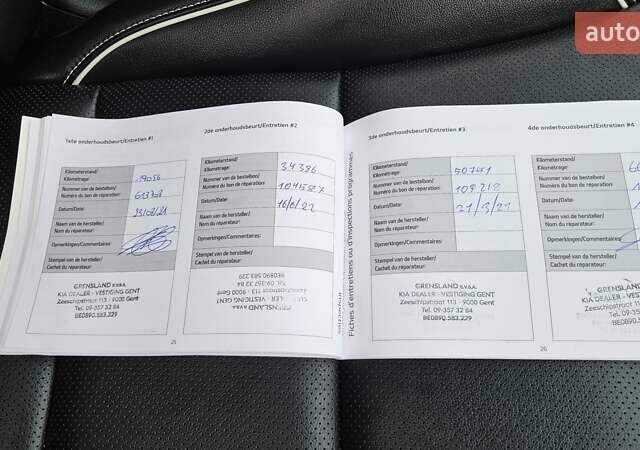 auto
1ste onderhoudsbeurt/Entretien #1
Kilometerstand/
Kilométrage:
19056
Nummer van de bestelbon/
Numéro du bon de réparation:
Datum/Date:
Naam van de hersteller/
Nom du réparateur:
Opmerkingen/Commentaires:
Stempel van de hersteller/
Cachet du réparateur:
GRENSLAND b.v.b.a.
KIA DEALER - VESTIGING GENT
Zeeschipstraat 113 - 9000 Gent
Tel. 09-357 32 84
BE0890.583.229
25
2de onderhoudsbeurt/Entretien #2
Kilometerstand/
Kilométrage:
34386
Nummer van de bestelbon/
Numéro du bon de réparation:
Datum/Date:
Naam van de hersteller/
Nom du réparateur:
Opmerkingen/Commentaires:
Stempel van de hersteller/
Cachet du réparateur:
BE0890.583.229
Tel. 09-357 32 84
Zeeschipstraat 113 - 9000 Gent
VESTIGING GENT
GRENSLAND
Fiches d'entretiens ou d'inspections programmées
3de onderhoudsbeurt/Entretien #3
Kilometerstand/
Kilométrage:
50751
Nummer van de bestelbon/
Numéro du bon de réparation:
109218
Datum/Date:
Naam van de hersteller/
Nom du réparateur:
Opmerkingen/Commentaires:
Stempel van de hersteller/
Cachet du réparateur:
GRENSLAND b.v.b.a.
KIA DEALER - VESTIGING GENT
Zeeschipstraat 113 - 9000 Gent
Tel. 09-357 32 84
BE0890.583.229
26
4de onderhoudsbeurt/Entretien #4
Kilometerstand/
Kilométrage:
Nummer van de bestelbon/
Numéro du bon de réparation:
Datum/Date:
Naam van de hersteller/
Nom du réparateur:
Opmerkingen/Commentaires:
Stempel van de hersteller/
Cachet du réparateur:
GRENSLAND
KIA DEALER - VESTIG
Zeeschipstraat 113
Tel. 09-35
BE0890.583